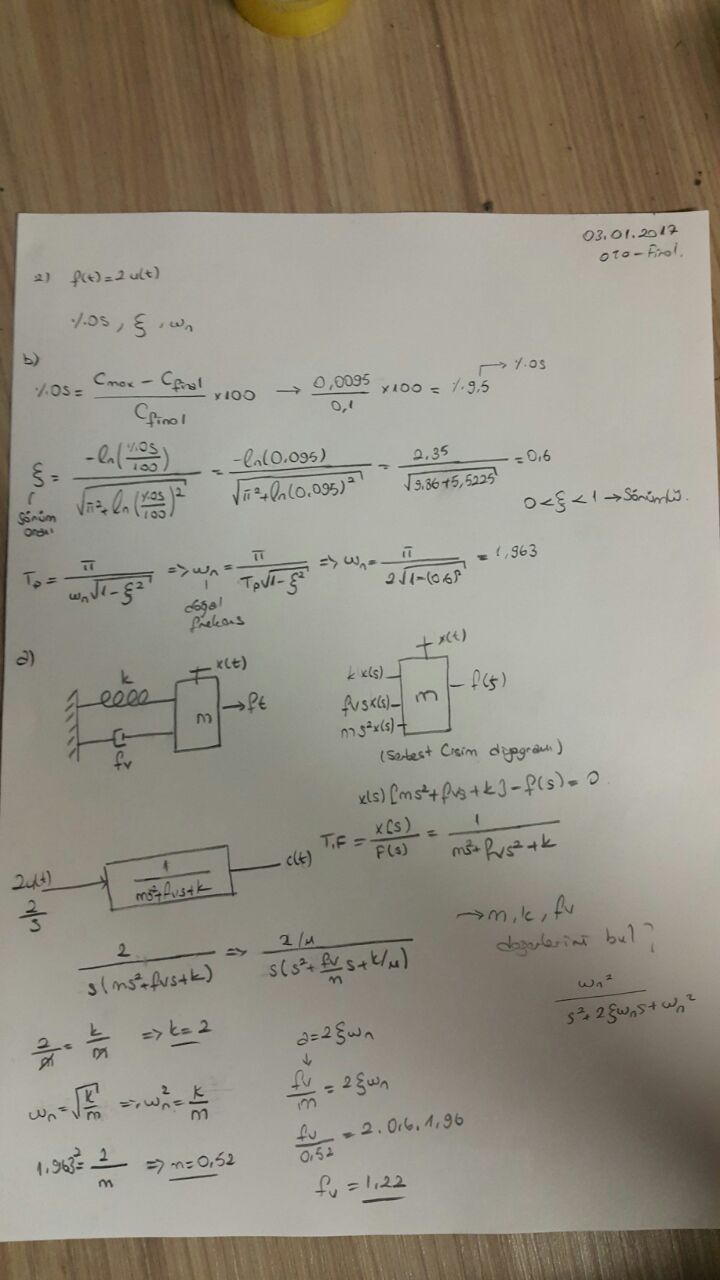 03.01.2017
OTO-Final.
2) f(t)=2u(t)
%OS, ξ, ωn
b)
%OS = (Cmax - Cfinal)/Cfinal x100 → 0,0095/0,1 x100 = %9,5 → %OS
ξ = -ln(%OS/100)/√(π²+ln(%OS/100)²) = -ln(0.095)/√(π²+ln(0.095)²) = 2,35/√(9.86+5,5225) = 0,6
Sönüm oranı
0<ξ<1 → Sönümlü.
Tp = π/(ωn√(1-ξ²)) => ωn = π/(Tp√(1-ξ²)) => ωn = π/(2√(1-(0.6)²)) = 1,963
doğal frekans
a)
k
x(t)
m
→ft
fv
x(t)
kx(s)
fvsx(s)
ms²x(s)
m
f(s)
(Serbest Cisim diyagramı)
x(s)[ms²+fvs+k]-f(s)=0
T.F = x(s)/F(s) = 1/(ms²+fvs²+k)
2u(t)
2/s
1/(ms²+fvs+k)
c(t)
→m,k,fv
değerlerini bul?
2/(s(ms²+fvs+k)) => (2/m)/(s(s²+fv/m s+k/m))
ωn²/(s²+2ξωns+ωn²)
2/m = k/m => k=2
a=2ξωn
↓
fv/m = 2ξωn
ωn=√(k/m) => ωn²=k/m
fv/0,52 = 2.0,6.1,96
1.963²=2/m => m=0,52
fv = 1,22